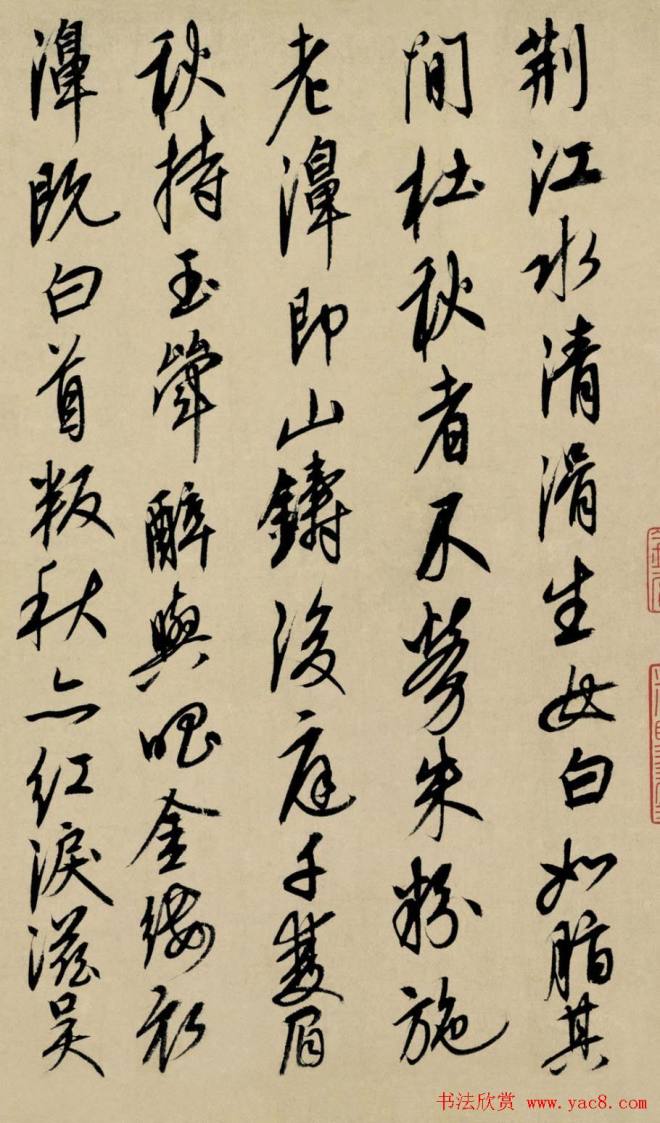 荊江水清滑生女白如脂其
間杜秋者不勞朱粉施
老濞即山鑄後庭千雙眉
秋持玉斝醉與唱金縷衣
濞既白首叛秋亦紅淚滋吳
书法欣赏 www.yac8.com